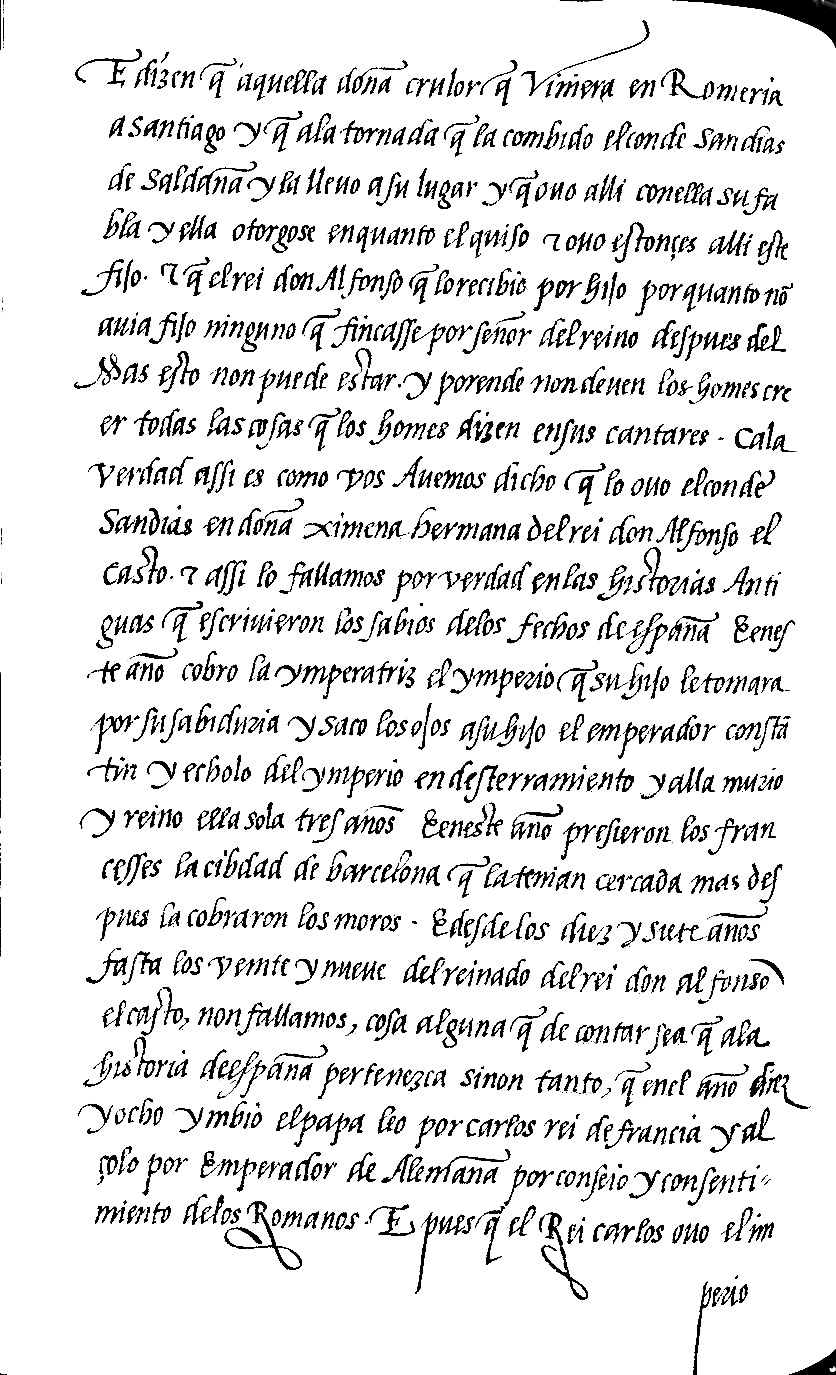 E dizen q̃ aquella doña crulor q̃ Viniera en Romeria
a Santiago y q̃ ala tornada q̃ la combido el conde San dias
de Saldaña y la lleuo a su lugar y q̃ ouo alli conella su fa
bla y ella otorgose enquanto el quiso ⁊ ouo estonçes alli este
fijo. ⁊ q̃ el rei don Alfonso q̃ lo recibio por hijo por quanto nõ
auia fijo ninguno q̃ fincasse por señor del reino despues del
Mas esto non puede estar. y porende non deuen los homes cre
er todas las cosas q̃ los homes dizen ensus cantares . Cala
verdad assi es como vos Auemos dicho q̃ lo ouo el conde
Sandias en doña ximena hermana del rei don Alfonso el
Casto. ⁊ assi lo fallamos por verdad en las historias Anti
guas q̃ escriuieron los sabios delos fechos de españa E enes
te año cobro la ymperatriz el ymperio q̃ su hijo le tomara
por su sabiduria y saco los ojos a su hijo el emperador constã
tin y echolo del ymperio en desterramiento y alla murio
y reino ella sola tres años E eneste año presieron los fran
cesses la cibdad de barcelona q̃ la tenian cercada mas des
pues la cobraron los moros . E desde los diez y siete años
fasta los veinte y nueue del reinado del rei don alfonso
el casto, non fallamos, cosa alguna q̃ de contar sea q̃ ala
historia de españa pertenezca sinon tanto, q̃ enel año diez
y ocho ymbio el papa leo por carlos rei de francia y al
çolo por Emperador de Alemaña por conseio y consenti-
miento delos Romanos . E pues q̃ el Rei carlos ouo el im
perio